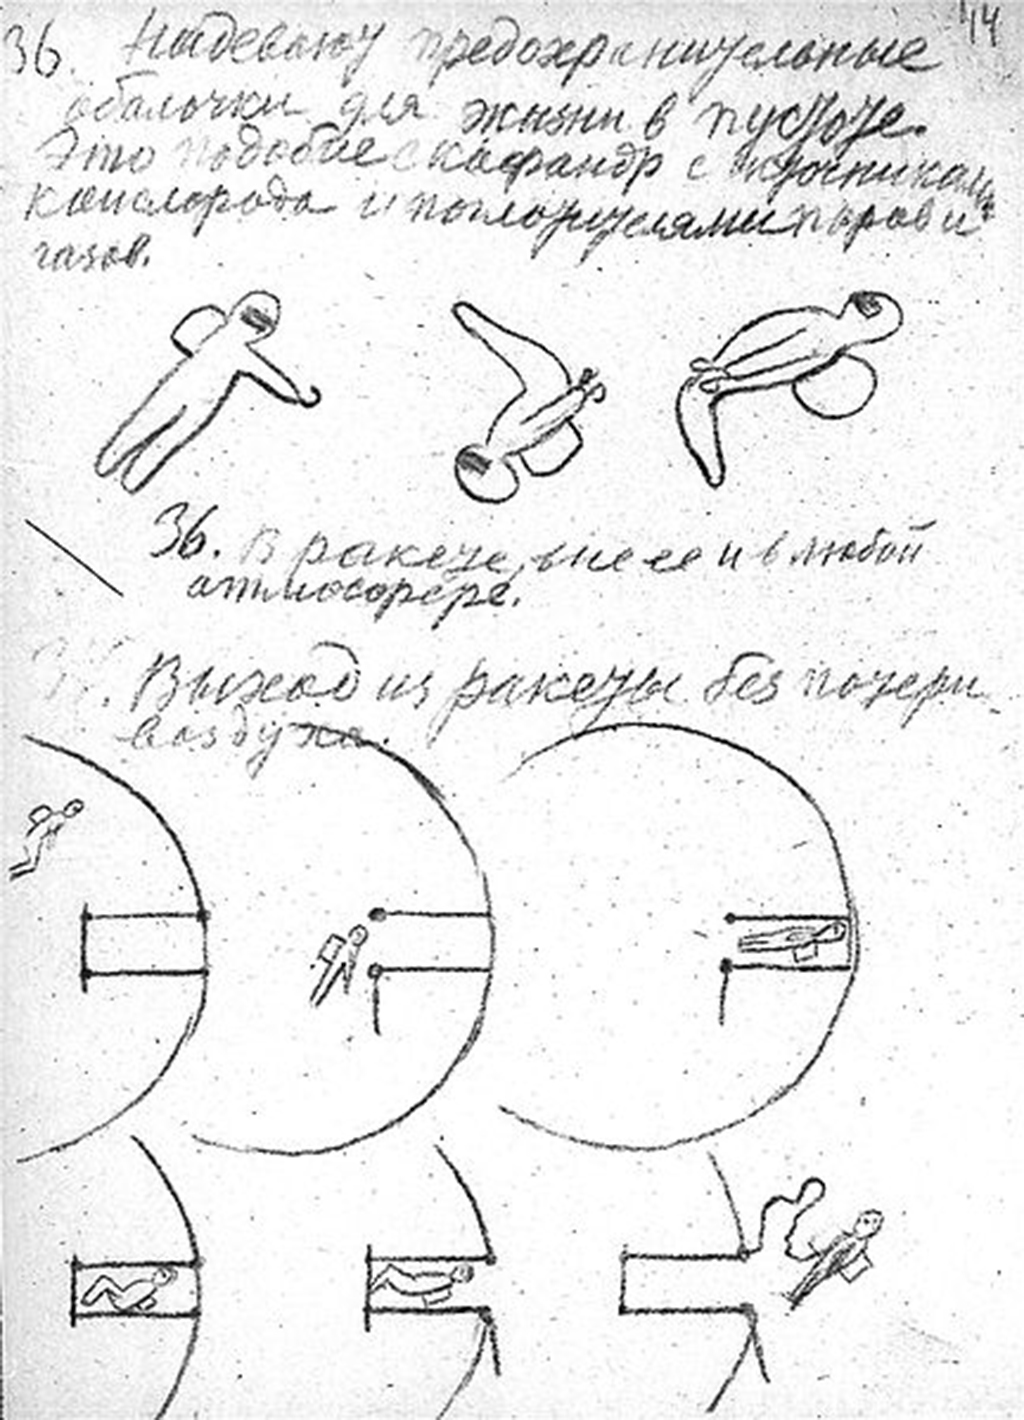 14
36. Надевают предохранительные
оболочки для жизни в пустоте.
Это подобие скафандр с источниками
кислорода и поглотителями паров и
газов.
36. В ракете, вне ее и в любой
атмосфере.
Выход из ракеты без потери
воздуха.